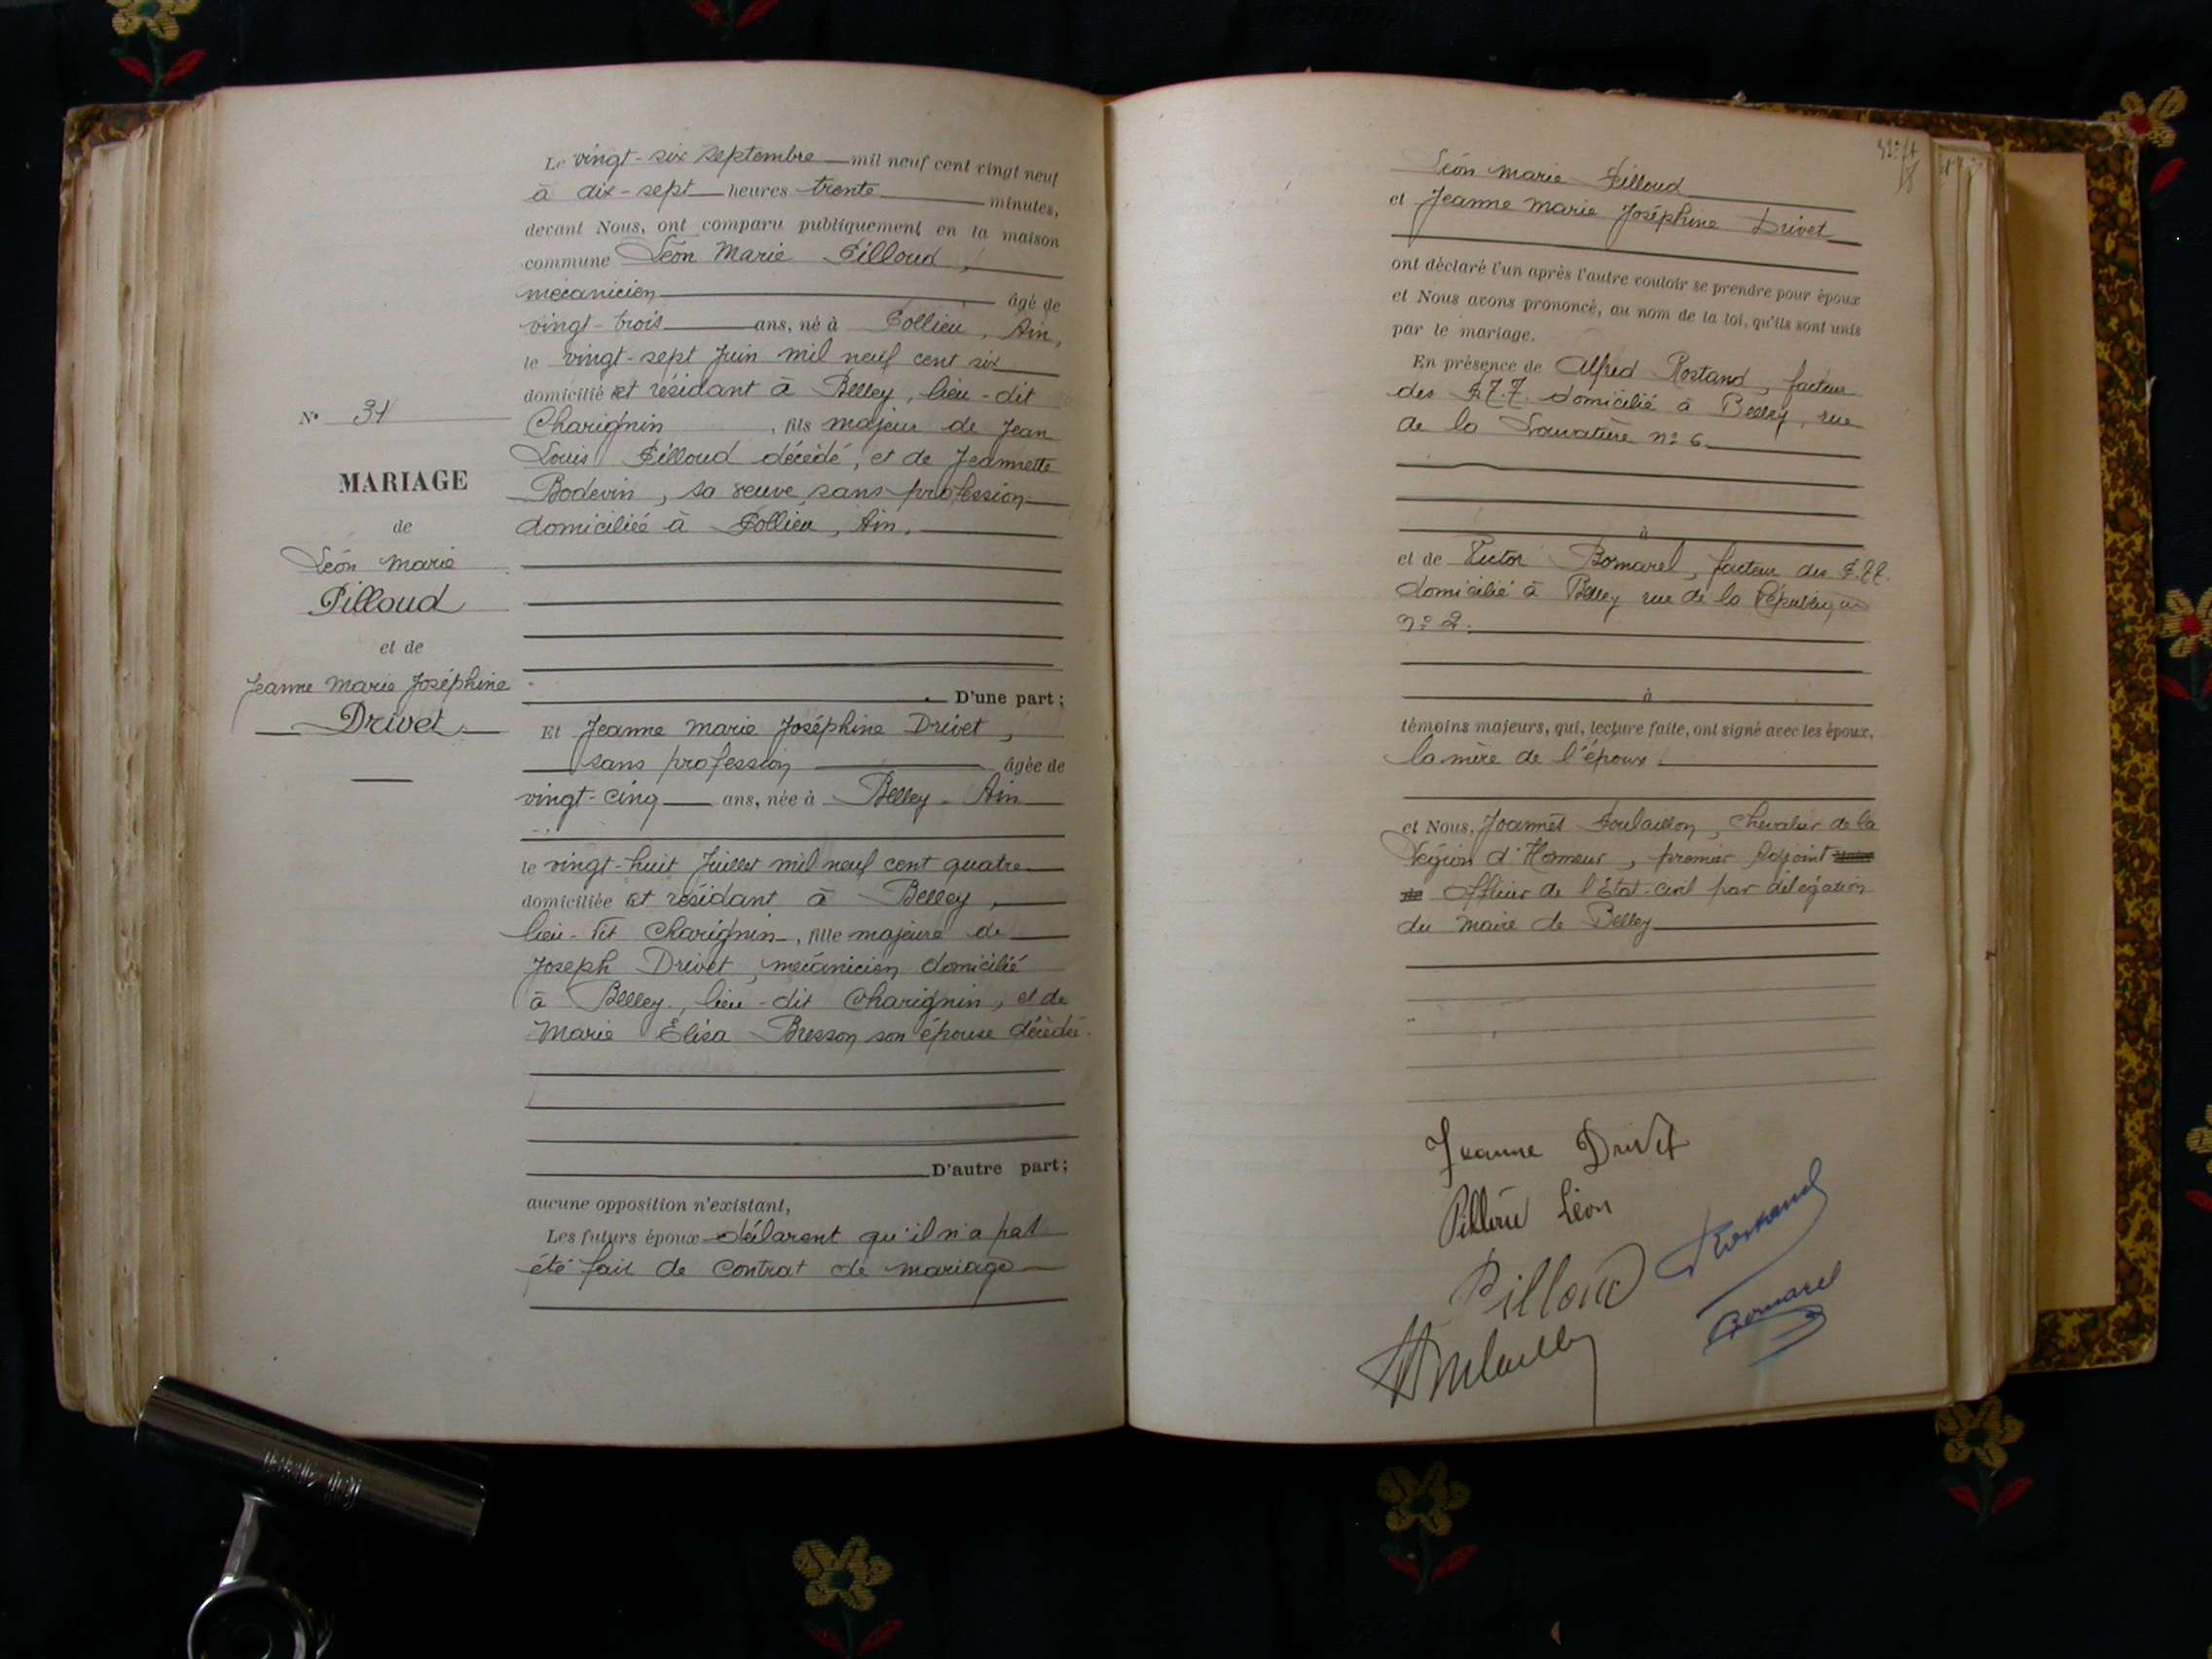 N° 31
MARIAGE
de
Léon Marie
Pilloud
et de
Jeanne Marie Joséphine
Drivet
Le vingt-six Septembre mil neuf cent vingt neuf
à dix-sept heures trente minutes,
devant Nous, ont comparu publiquement en la maison
commune Léon Marie Pilloud,
mécanicien âgé de
vingt-trois ans, né à Pollieu, Ain,
le vingt-sept Juin mil neuf cent six
domicilié et résidant à Belley, lieu-dit
Charignin, fils majeur de Jean
Louis Pilloud décédé, et de Jeannette
Bodevin, sa veuve, sans profession
domiciliée à Pollieu, Ain.
D'une part;
Et Jeanne Marie Joséphine Drivet,
sans profession âgée de
vingt-cinq ans, née à Belley - Ain
le vingt-huit Juillet mil neuf cent quatre
domiciliée et résidant à Belley,
lieu-dit Charignin, fille majeure de
Joseph Drivet, mécanicien domicilié
à Belley, lieu-dit Charignin, et de
Marie Élisa Bresson son épouse décédée.
D'autre part;
aucune opposition n'existant,
Les futurs époux déclarent qu'il n'a pas
été fait de contrat de mariage
Léon Marie Pilloud
et Jeanne Marie Joséphine Drivet
ont déclaré l'un après l'autre vouloir se prendre pour époux
et Nous avons prononcé, au nom de la loi, qu'ils sont unis
par le mariage.
En présence de Alfred Rostand, facteur
des P.T.T. domicilié à Belley, rue
de la Louvatière n° 6
à
et de Victor Bomarel, facteur des P.T.T.
domicilié à Belley rue de la République
n° 2.
à
témoins majeurs, qui, lecture faite, ont signé avec les époux,
la mère de l'époux
et Nous, Joannès Poulaillon, Chevalier de la
Légion d'Honneur, premier Adjoint
Officier de l'État-civil par délégation
du Maire de Belley
Jeanne Drivet
Pilloud Léon
Pilloud Rostand
Bomarel